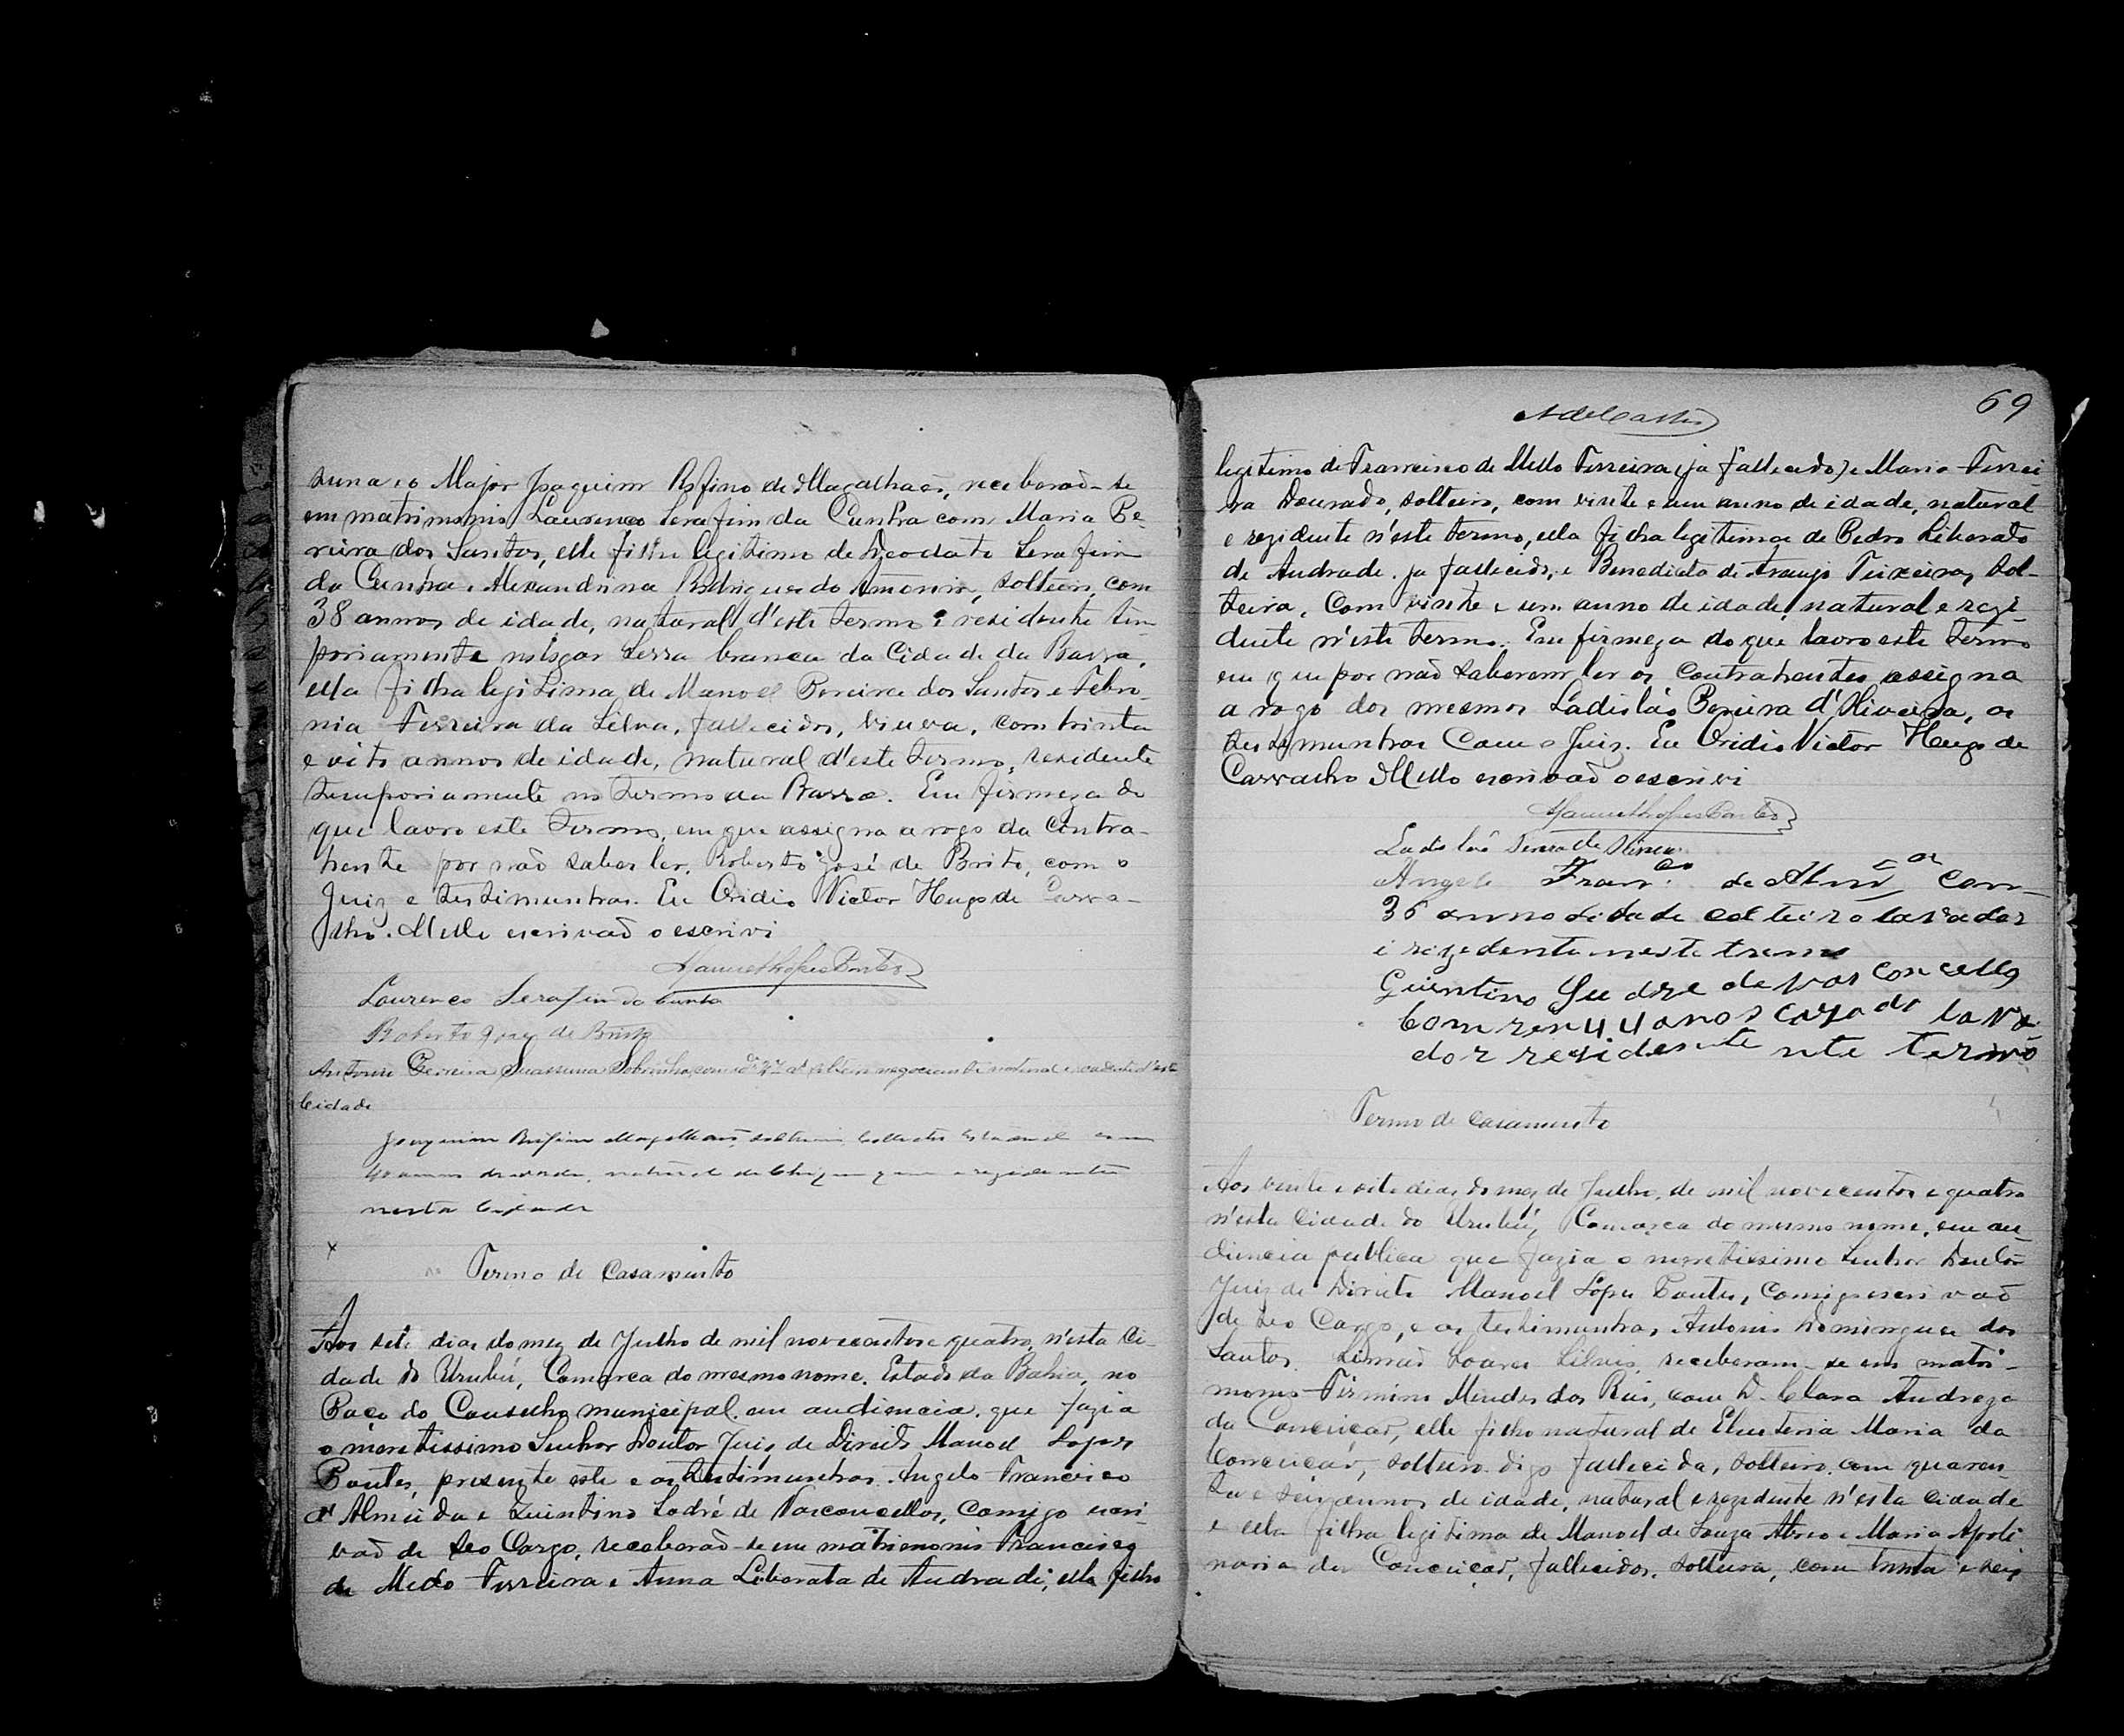 suna e o Major Joaquim Rofino de Magalhaẽs, receberaõ-se
em matrimonio Laurenço Serafim da Cunha com Maria Pe-
reira dos Santos, elle filho legitimo de Deodato Serafim
da Cunha e Alexandrina Rodrigues do Amorim, solteiro, com
38 annos de idade, natural d'este termo e residente tem-
poriamente no logar Serra branca da Cidade da Barra,
ella filha legitima de Manoel Pereira dos Santos e Febro-
nia Ferreira da Silva, fallecidos, viuva, com trinta
e oito annos de idade, natural d'este termo, residente
temporiamente no termo da Barra. Em firmeza do
que lavro este termo, em que assigna a rogo da contra-
hente por não saber ler, Roberto José de Brito, com o
Juiz e testimunhas. Eu Ovidio Victor Hugo de Carva-
lho Mello escrivaõ o escrivi
Manoel Lopes Pontes
Lourenço Serafim da Cunha
Roberto José de Brito
Antonio Pereira Suassuna Sobrinho, com solteiro negociante natural e residente d'esta
Cidade
Joaquim Rufino Magalhaẽs, solteiro, Collector Estadoal com
annos de idade, natural de e rezidente
nesta Cidade
Termo de Casamento
Aos sete dias do mez de Julho de mil novecentos e quatro, n'esta Ci-
dade do Urubú, Comarca do mesmo nome, Estado da Bahia, no
Paço do Conselho municipal, em audiencia, que fazia
o meretissimo Senhor Doutor Juiz de Direito Manoel Lopes
Pontes, presente este e as testimunhas Angelo Francisco
d'Almeida e Quintino Sodré de Vasconcellos, Comigo escri-
vaõ de seo Cargo, receberaõ-se em matrimonio Francisco
de Mello Ferreira e Anna Liborata de Andrade, elle filho
69
legitimo de Francisco de Mello Ferreira (ja fallecido) e Maria Ferrei-
ra Dourado, solteiro, com vinte e um anno de idade, natural
e rezidente n'este termo, ella filha legitima de Pedro Liborato
de Andrade, ja fallecido, e Benedicta de Araujo Teixeira, sol-
teira, com vinte e um anno de idade, natural e rezi-
dente n'este termo. Em firmeza do que lavro este termo
em que por naõ saberem ler os contrahentes assigna
a rogo dos mesmos Ladisláo Pereira d'Oliveira, as
testemunhas com o Juiz. Eu Ovidio Victor Hugo de
Carvalho Mello escrivaõ o escrivi
Manoel Lopes Pontes
Ladisláo Pereira de Oliveira
Angelo Fran.co de Almd.a com
36 annos didade colteiro lavrador
i rezedente neste tremo
Quintino Sudre de vas con cellos
com 44 anos cazado lavra
dor rezidente nte termo
Termo de casamento
Aos vinte e oito dias do mez de Julho, de mil novecentos e quatro
n'esta Cidade do Urubú, Comarca do mesmo nome, em au-
diencia publica que fazia o meretissimo Senhor Doutor
Juiz de Direito Manoel Lopes Pontes, Comigo escrivaõ
de seo Cargo, e as testimunhas Antonio Domingues dos
Santos, Soares receberam-se em matri-
monio Firmino Mendes dos Reis, com D. Clara Andreza
da Conceiçaõ, elle filho natural de Eleuteria Maria da
Conceiçaõ, solteiro digo fallecida, solteiro, com quaren-
ta e seis annos de idade, natural e rezidente n'esta cidade
e ella filha legitima de Manoel de Souza Abreo e Maria Apoli
naria da Conceiçaõ, fallecidos, solteira, com trinta e seis